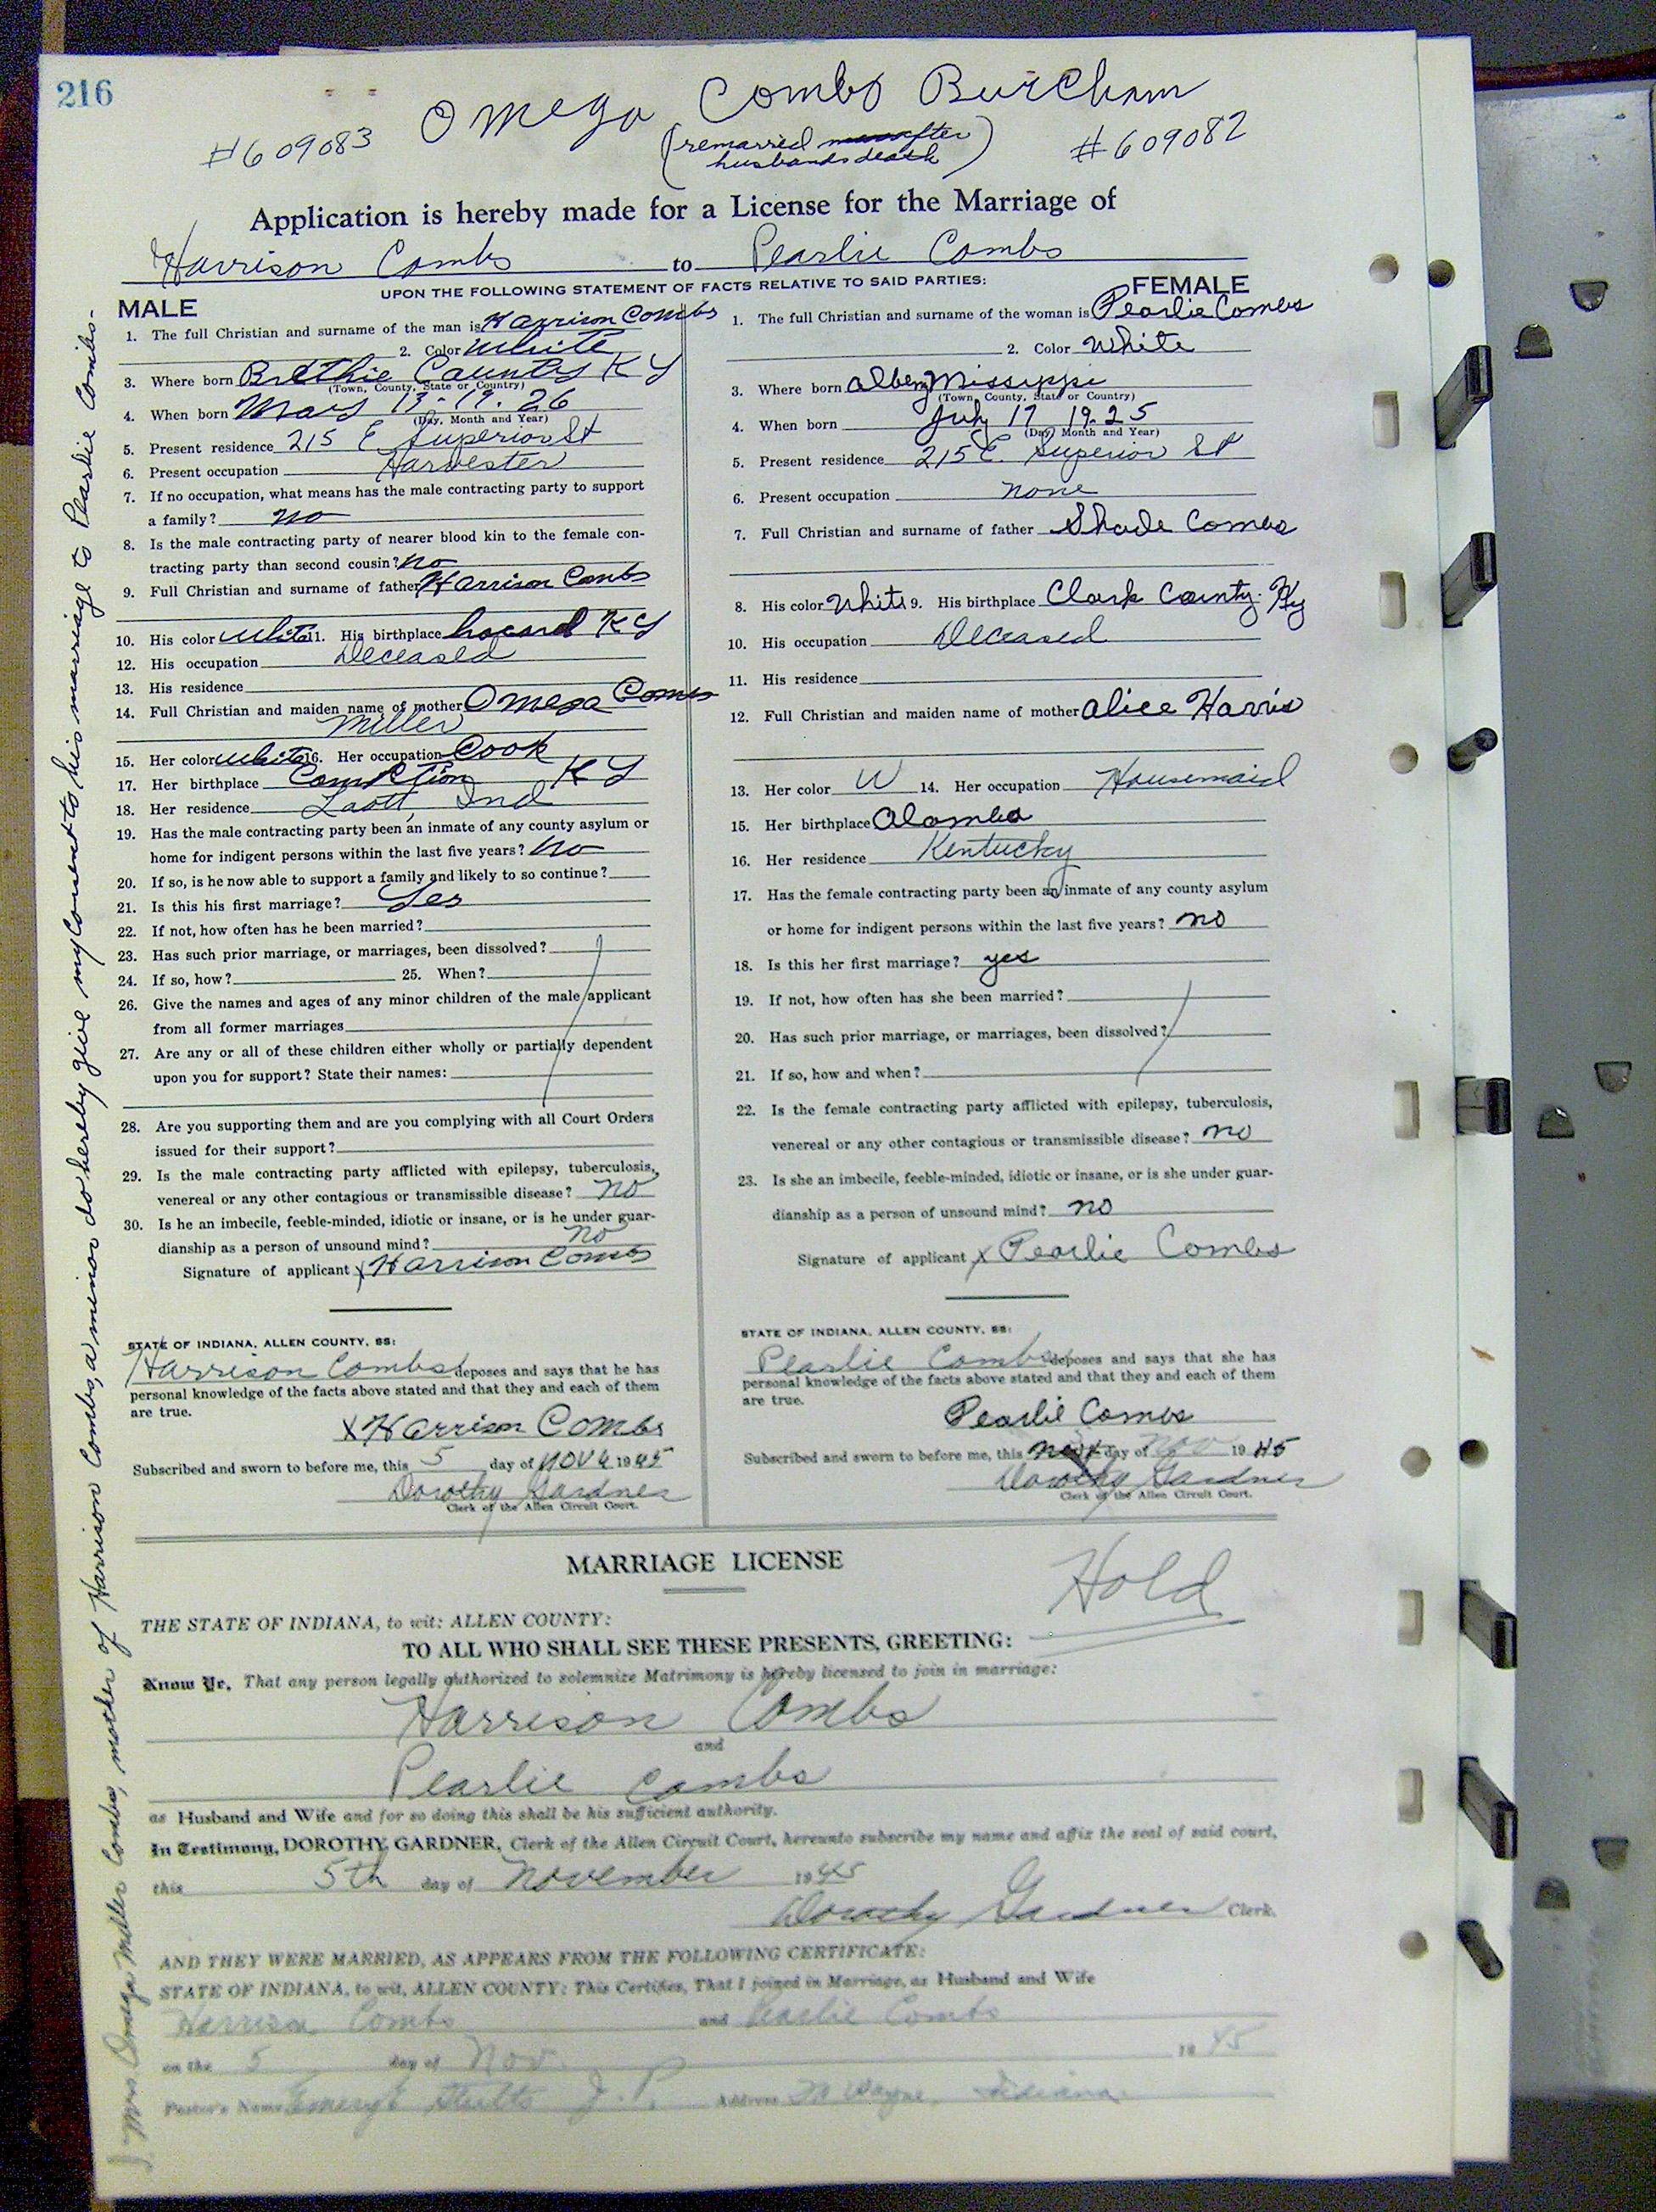 216
Omega Combs Burcham
#609083
(remarried after
husbands death)
#609082
Application is hereby made for a License for the Marriage of
Harrison Combs to Pearlie Combs
UPON THE FOLLOWING STATEMENT OF FACTS RELATIVE TO SAID PARTIES:
MALE
1. The full Christian and surname of the man is Harrison Combs
2. Color White
3. Where born Brethie County KY
(Town, County, State or Country)
4. When born May 13-19.26
(Day, Month and Year)
5. Present residence 215 E Superior St
6. Present occupation Harvester
7. If no occupation, what means has the male contracting party to support
a family? no
8. Is the male contracting party of nearer blood kin to the female con-
tracting party than second cousin? no
9. Full Christian and surname of father Harrison Combs
10. His color White 11. His birthplace hazard KY
12. His occupation Deceased
13. His residence
14. Full Christian and maiden name of mother Omega Combs
Miller
15. Her color White 16. Her occupation Cook
17. Her birthplace KY
18. Her residence Ind
19. Has the male contracting party been an inmate of any county asylum or
home for indigent persons within the last five years? no
20. If so, is he now able to support a family and likely to so continue?
21. Is this his first marriage? Yes
22. If not, how often has he been married?
23. Has such prior marriage, or marriages, been dissolved?
24. If so, how? 25. When?
26. Give the names and ages of any minor children of the male applicant
from all former marriages
27. Are any or all of these children either wholly or partially dependent
upon you for support? State their names:
28. Are you supporting them and are you complying with all Court Orders
issued for their support?
29. Is the male contracting party afflicted with epilepsy, tuberculosis,
venereal or any other contagious or transmissible disease? no
30. Is he an imbecile, feeble-minded, idiotic or insane, or is he under guar-
dianship as a person of unsound mind? no
Signature of applicant x Harrison Combs
STATE OF INDIANA, ALLEN COUNTY, SS:
Harrison Combs deposes and says that he has
personal knowledge of the facts above stated and that they and each of them
are true.
x Harrison Combs
Subscribed and sworn to before me, this 5 day of Nov 1945
Dorothy Gardner
Clerk of the Allen Circuit Court.
FEMALE
1. The full Christian and surname of the woman is Pearlie Combs
2. Color White
3. Where born Missippi
(Town, County, State or Country)
4. When born July 17 1925
(Day, Month and Year)
5. Present residence 215 E. Superior St
6. Present occupation none
7. Full Christian and surname of father Shade Combs
8. His color White 9. His birthplace Clark County. Ky
10. His occupation Deceased
11. His residence
12. Full Christian and maiden name of mother Alice Harris
13. Her color W 14. Her occupation Housemaid
15. Her birthplace Alamba
16. Her residence Kentucky
17. Has the female contracting party been an inmate of any county asylum
or home for indigent persons within the last five years? no
18. Is this her first marriage? yes
19. If not, how often has she been married?
20. Has such prior marriage, or marriages, been dissolved?
21. If so, how and when?
22. Is the female contracting party afflicted with epilepsy, tuberculosis,
venereal or any other contagious or transmissible disease? no
23. Is she an imbecile, feeble-minded, idiotic or insane, or is she under guar-
dianship as a person of unsound mind? no
Signature of applicant x Pearlie Combs
STATE OF INDIANA, ALLEN COUNTY, SS:
Pearlie Combs deposes and says that she has
personal knowledge of the facts above stated and that they and each of them
are true.
Pearlie Combs
Subscribed and sworn to before me, this day of Nov 1945
Dorothy Gardner
Clerk of the Allen Circuit Court.
MARRIAGE LICENSE
Hold
THE STATE OF INDIANA, to wit: ALLEN COUNTY:
TO ALL WHO SHALL SEE THESE PRESENTS, GREETING:
Know Ye, That any person legally authorized to solemnize Matrimony is hereby licensed to join in marriage:
Harrison Combs
and
Pearlie Combs
as Husband and Wife and for so doing this shall be his sufficient authority.
In Testimony, DOROTHY GARDNER, Clerk of the Allen Circuit Court, hereunto subscribe my name and affix the seal of said court,
this 5th day of November 1945
Dorothy Gardner Clerk.
AND THEY WERE MARRIED, AS APPEARS FROM THE FOLLOWING CERTIFICATE:
STATE OF INDIANA, to wit, ALLEN COUNTY: This Certifies, That I joined in Marriage, as Husband and Wife
Harrison Combs and Pearlie Combs
on the 5 day of Nov 1945
Pastor's Name J.P. Address Ft Wayne, Indiana
I, Mrs Omega Miller Combs, mother of Harrison Combs, a minor do hereby give my Consent to his marriage to Pearlie Combs-